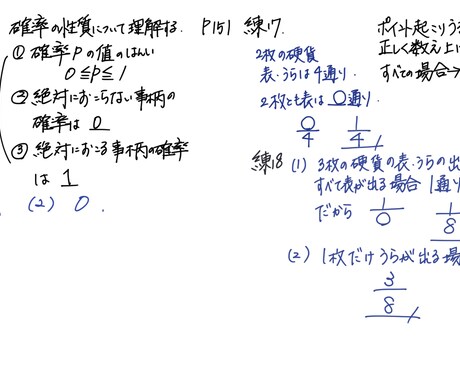 確率の性質について理解する.
① 確率Pの値のはんい
0≦P≦1
② 絶対におこらない事柄の
確率は 0
③ 絶対におこる事柄の確率
は 1
(2) 0.
P151 練17.
2枚の硬貨
表・うらは4通り.
2枚とも表は0通り.
0/4 1/4
練18 (1) 3枚の硬貨の表・うらの出
すべて表が出る場合 1通り
だから 1/0 1/8
(2) 1枚だけうらが出る場
3/8
ポイント起こりう
正しく数え上
すべての場合→